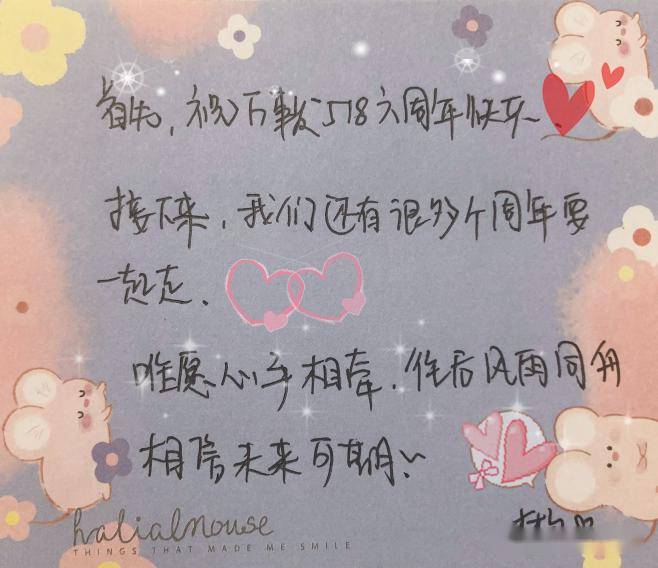 首先，祝万事发518六周年快乐~
接下来，我们还有很多个周年要
一起走、
唯愿心手相牵，往后风雨同舟
相信未来可期~
halialmouse
THINGS THAT MADE ME SMILE